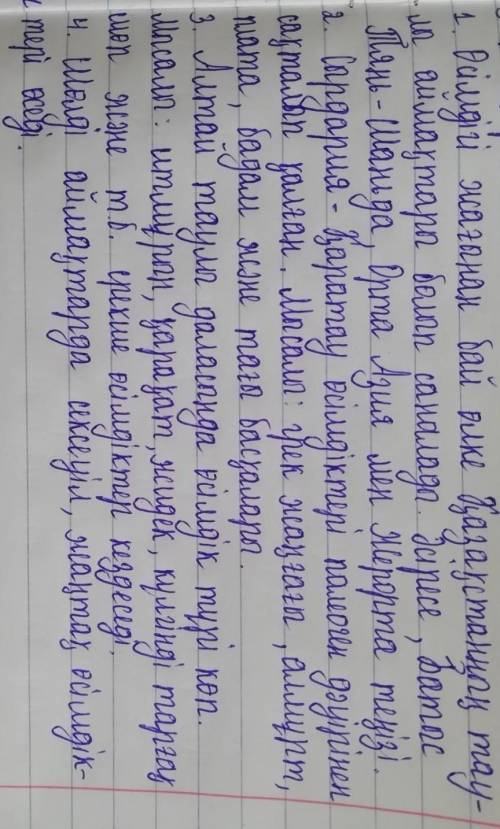 1. Өсімдігі жағынан бай өлке Қазақстанның тау-
лы аймақтары болып саналады. Әсіресе, Батыс
Тянь-Шаньда, Орта Азия мен Жерорта теңізі.
2. Сырдария-Қаратау өсімдіктері палеоген дәуірінен
сақталып қалған. Мысалы: грек жаңғағы, алмұрт,
пста, бадам және тағы басқалары.
3. Алтай таулы даласында өсімдік түрі көп.
Мысалы: итмұрын, қарақат, жидек, күлгінді тарғау
шөп және т.б. ерекше өсімдіктер кездеседі.
4. Шөлді аймақтарда сексеуіл, жантақ өсімдік-
тері өседі.